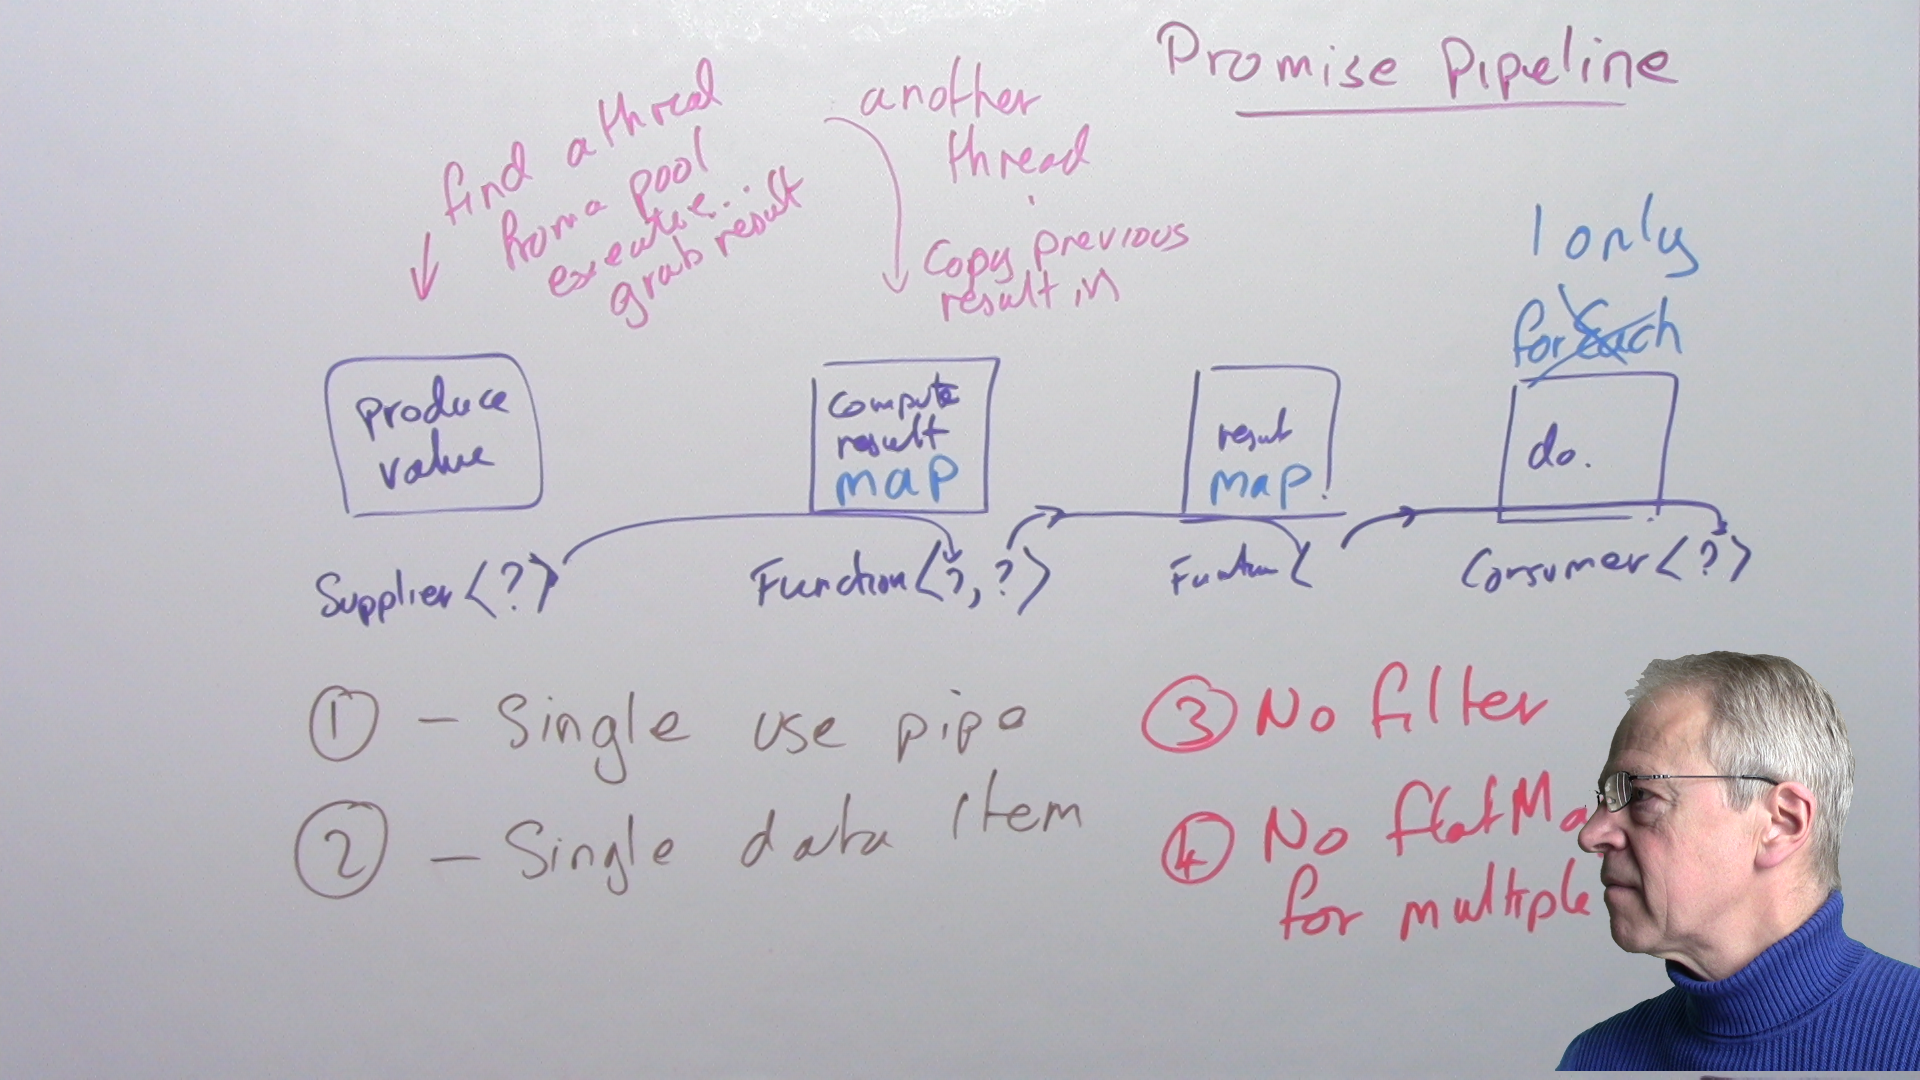 Promise Pipeline
find a thread
from a pool
execute..
grab result
another
thread
copy previous
result in
1 only
forEach
produce
value
compute
result
map
result
map
do.
Supplier<?>
Function<?,?>
Function<
Consumer<?>
① - Single use pipe
② - Single data item
③ No filter
④ No flatMa
for multiple